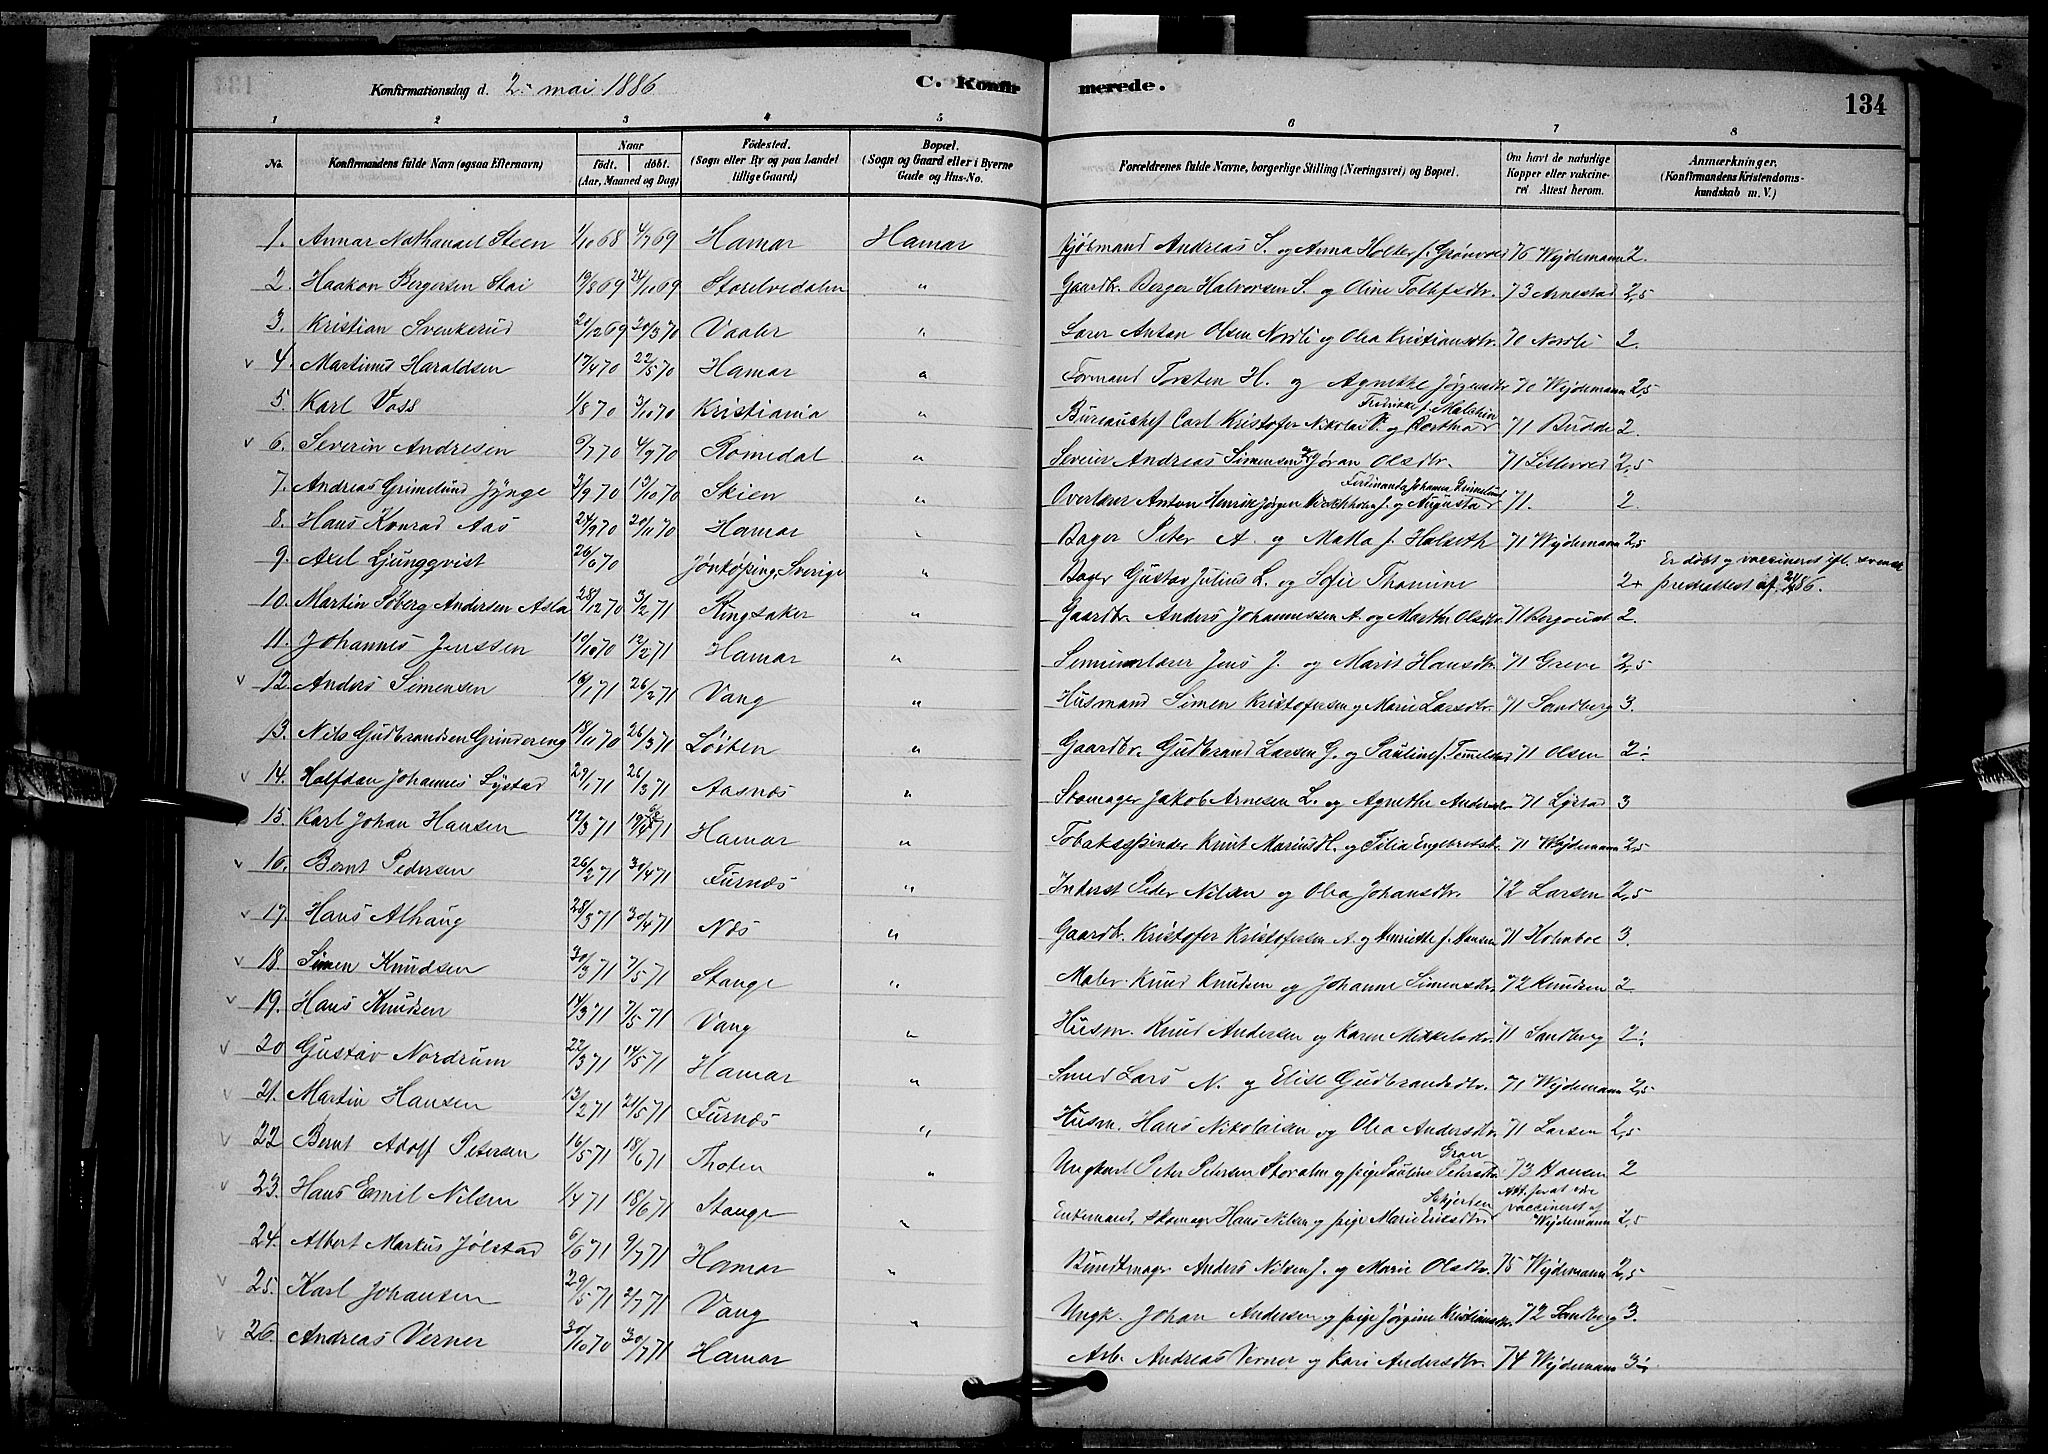 Konfirmationsdag d. 2. mai 1886
C. Konfirmerede.
134
1 2 3 4 5 6 7 8
No.
Konfirmandens fulde Navn (ogsaa Efternavn)
Naar
født. døbt.
(Aar, Maaned og Dag)
Fødested.
(Sogn eller By og paa Landet
tillige Gaard)
Bopæl.
(Sogn og Gaard eller i Byerne
Gade og Hus-No.
Forældrenes fulde Navne, borgerlige Stilling (Næringsvei) og Bopæl.
Om havt de naturlige
Kopper eller vakcine-
ret Attest herom.
Anmærkninger.
(Konfirmandens Kristendoms-
kundskab m. V.)
1. Annar Nathanael Steen 1/10 68 4/7 69 Hamar Hamar Kjøbmand Andreas S. og Anna Holter f. Grønvold 76 Wejdemann 2.
2. Haakon Bergersen Stai 19/8 69 24/10 69 Storelvedalen " Gaardb. Berger Halvorsen S. og Oline Tollefsdtr. 73 Arnestad 2,5
3. Kristian Svenkerud 20/12 69 20/3 70 Vaaler " Lærer Anton Olsen Nordli og Olea Kristiansdtr. 70 Nordli 2.
4. Martinus Haraldsen 17/4 70 22/5 70 Hamar " Formand Torsten H. og Agnethe Jørgensdtr 70 Wejdemann 2,5
5. Karl Voss 1/8 70 3/10 70 Kristiania " Bureauchef Carl Kristofer Nikolai V. og Bertha Fredrikke f. Malthin 71 Budde 2.
6. Severin Andresen 6/7 70 4/9 70 Romedal " Andreas Simensen og Jøran Olsdtr. 71 Lillevold 2,5
7. Andreas Grimelund Jynge 3/9 70 13/10 70 Skien " Overlærer Anton Henrik Jørgen J. og Augusta Ferdinanda Johanna Grimelund 71. 2
8. Hans Konrad Aas 24/9 70 20/11 70 Hamar " Bager Peter A. og Matea f. Halseth 71 Wejdemann 2,5
9. Axel Ljungqvist 26/6 70 Jönköping, Sverige " Bager Gustav Julius L. og Sofie Thamine 2+ Er døbt og vaccineret ifl. svensk
presteattest af 2/4 86.
10. Martin Søberg Andersen Asla 28/12 70 3/2 71 Ringsaker " Gaardbr. Anders Johannessen A. og Marthe Olsdtr. 71 Bergsund 2.
11. Johannes Jenssen 10/10 70 12/2 71 Hamar " Seminarlærer Jens J. og Marit Hansdtr. 71 Greve 2,5
12. Anders Simensen 16/1 71 26/2 71 Vang " Husmand Simen Kristofersen og Marie Larsdtr. 71 Sandberg 3.
13. Nils Gudbrandsen Grindereng 18/11 70 26/3 71 Løiten " Gaardbr. Gudbrand Larsen G. og Pauline f. 71 Olsen 2-
14. Halfdan Johannes Lystad 29/1 71 26/3 71 Aasnæs " Skomager Jakob Arnesen L. og Agnethe Andersdtr 71 Lystad 3
15. Karl Johan Hansen 12/3 71 19/4 71 Hamar " Tobaksspinder Knut Marius H. og Tilia Engebretsdtr. 71 Wejdemann 2,5
16. Bernt Pedersen 26/2 71 30/4 71 Furnæs " Inderst Peder Nilsen og Olea Johansdtr. 72 Larsen 2,5
17. Hans Alhaug 28/3 71 30/4 71 Næs " Gaardb. Kristofer Kristofersen A. og Henriette f. Hansen 71 Holmboe 3.
18. Simen Knudsen 30/3 71 7/5 71 Stange " Maler Knud Knudsen og Johanne Simensdtr. 72 Knudsen 2
19. Hans Knudsen 14/3 71 7/5 71 Vang " Husm. Knud Andersen og Karen Mikkelsdtr. 71 Sandberg 2-
20 Gustav Nordrum 22/3 71 14/5 71 Hamar " Smed Lars N. og Elise Gudbrandsdtr. 71 Wejdemann 2,5
21. Martin Hansen 12/2 71 21/5 71 Furnæs " Husm. Hans Nikolaisen og Olea Andersdtr. 71 Larsen 2,5
22. Bernt Adolf Petersen 16/5 71 18/6 71 Thoten " Ungkarl Peter Petersen og pige Pauline Petersdtr Gran 73 Hansen 2
23. Hans Emil Nilsen 1/4 71 18/6 71 Stange " Enkemand, skomager Hans Nilsen og pige Marie Eriksdtr. Att. for at være
vaccineret af
Wejdemann 2,5
24. Albert Markus Jølstad 6/6 71 9/7 71 Hamar " Buntmager Anders Nilsen J. og Marie Olsdtr. 75 Wejdemann 2,5
25. Karl Johansen 29/5 71 2/7 71 Vang " Ungk. Johan Andersen og pige Jørgine Kristiansdtr. 72 Sandberg 3.
26. Andreas Verner 30/10 70 30/7 71 Hamar Arb. Andreas Verner og Kari Andersdtr. 74 Wejdemann 3-